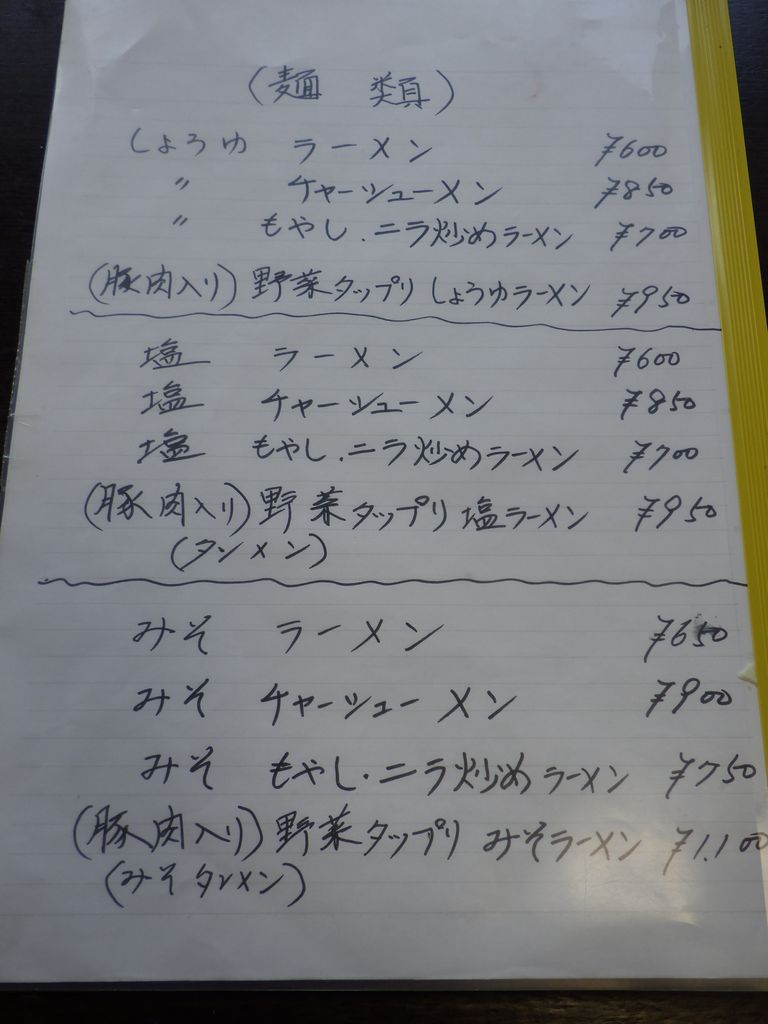 (麺 類)
しょうゆ ラーメン ¥600
〃 チャーシューメン ¥850
〃 もやし.ニラ炒めラーメン ¥700
(豚肉入り) 野菜タップリ しょうゆラーメン ¥950
塩 ラーメン ¥600
塩 チャーシューメン ¥850
塩 もやし.ニラ炒めラーメン ¥700
(豚肉入り) 野菜タップリ 塩ラーメン ¥950
(タンメン)
みそ ラーメン ¥650
みそ チャーシューメン ¥900
みそ もやし・ニラ炒めラーメン ¥750
(豚肉入り) 野菜タップリ みそラーメン ¥1.100
(みそタンメン)